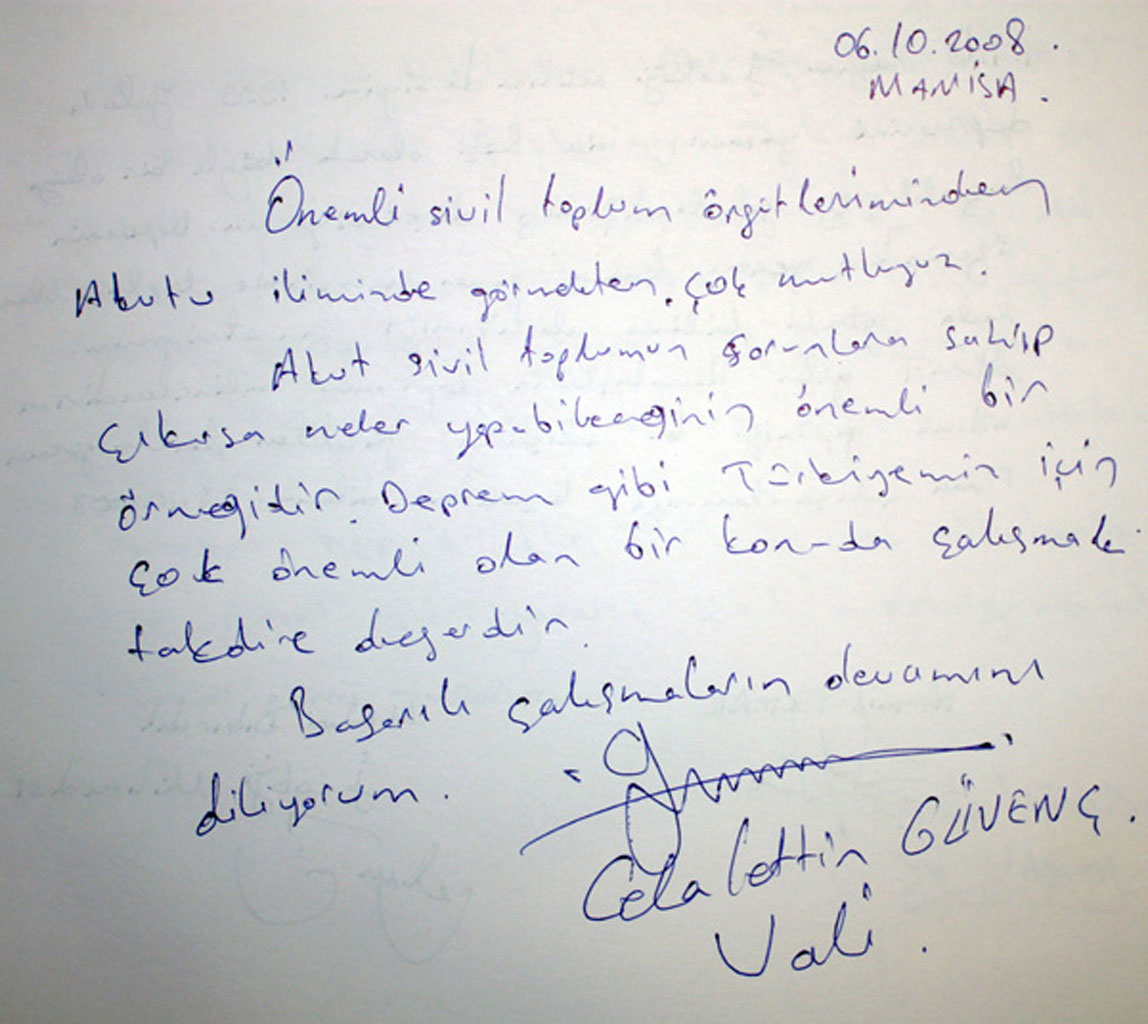 06.10.2008.
MANİSA.
Önemli sivil toplum örgütlerimizden
Akutu ilimizde görmekten çok mutluyuz.
Akut sivil toplumun sorunlara sahip
çıkırsa neler yapabileceğinin önemli bir
örneğidir. Deprem gibi Türkiyemiz için
çok önemli olan bir konuda çalışmak
takdire değerdir.
Başarılı çalışmaların devamını
diliyorum.
Celalettin GÜVENÇ.
Vali.